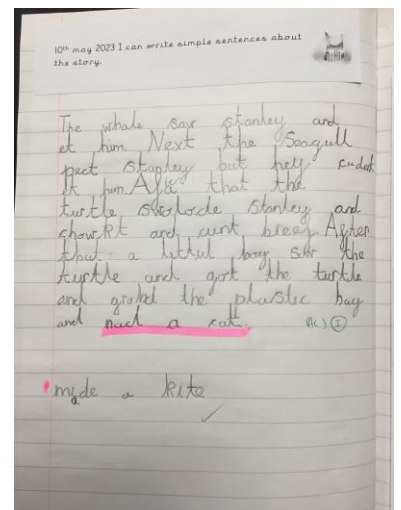 10th may 2023 I can write simple sentences about
the story.
The whale saw stanley and
et him. Next the Seagull
pect stanley but hey cudat
it him. Aftr that the
turtle swolode stanley and
chowkt and cunt breev After
that a littul boy saw the
turtle and got the turtle
and grabd the plastic bag
and mad a cat.
made a kite